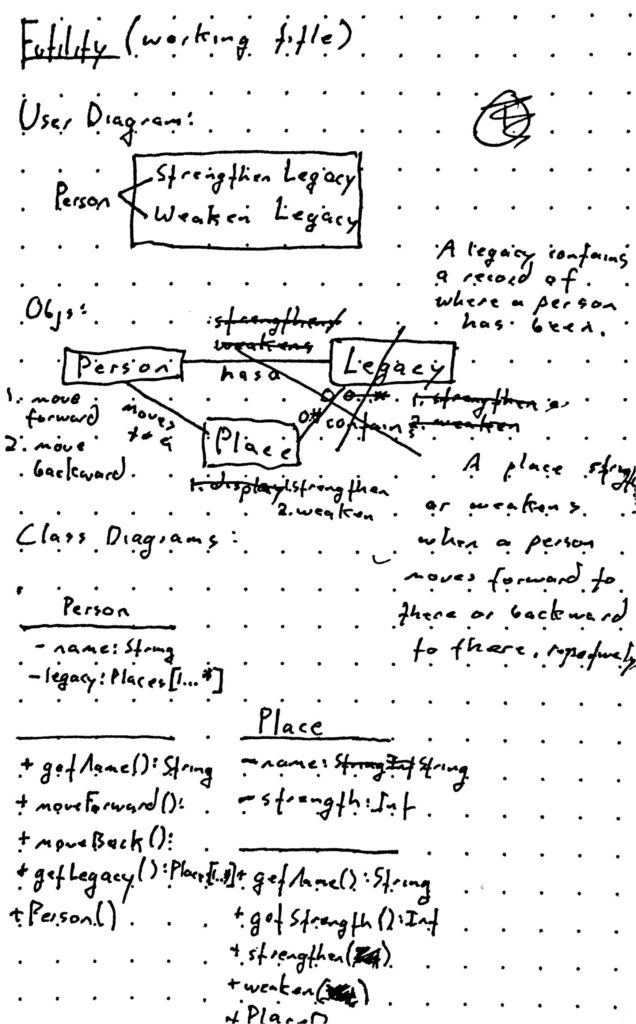 Futility (working title)
User Diagram:
Person
Strengthen Legacy
Weaken Legacy
A legacy contains
a record of
where a person
has been.
Objs:
strengthens
weakens
Person
has a
Legacy
1. move
forward
2. move
backward
moves
to a
Place
0..*
0*
contains
1. strengthen
2. weaken
1. display
1. strengthen
2. weaken
A place
or weakens
when a person
moves forward to
there or backward
to there, respectively
Class Diagrams:
Person
- name: String
- legacy: Places[1...*]
+ getName(): String
+ moveForward():
+ moveBack():
+ getLegacy(): Place[1..*]
+ Person()
Place
- name: String Int String
- strength: Int
+ getName(): String
+ getStrength(): Int
+ strengthen( )
+ weaken( )
+ Place()